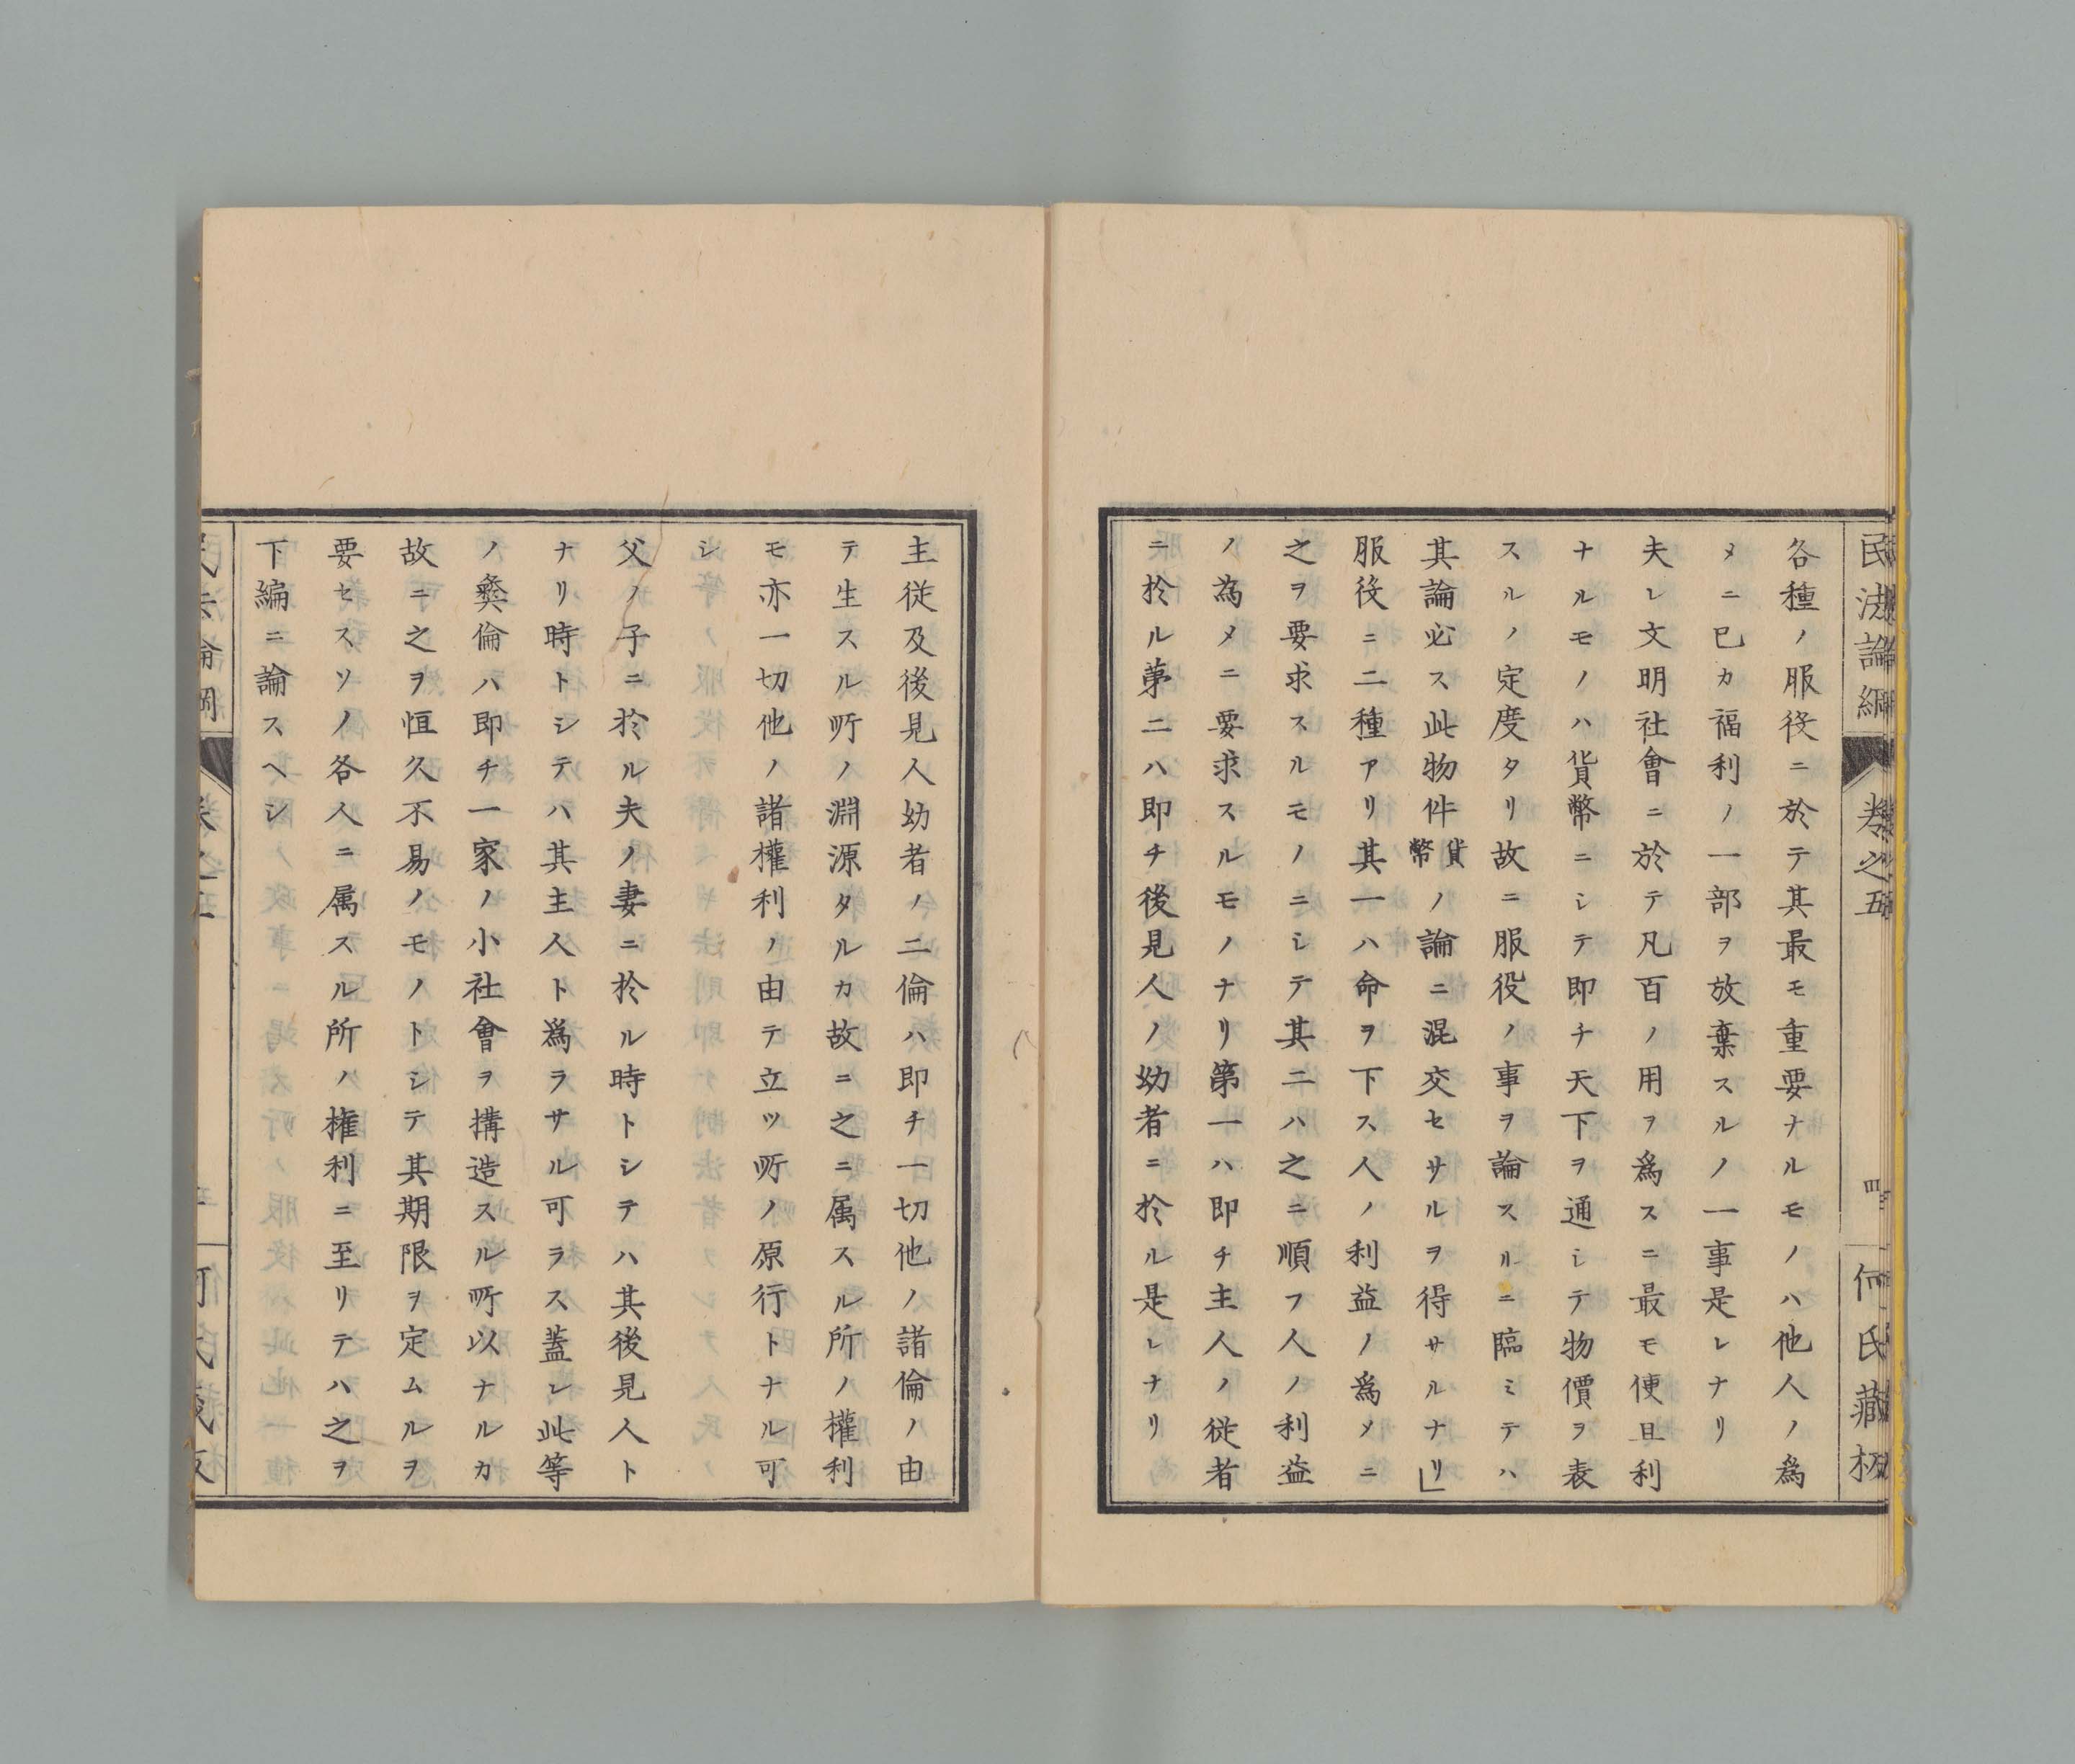 民法論綱 卷之五 四 何氏藏板
各種ノ服役ニ於テ其最モ重要ナルモノハ他人ノ爲
メニ已カ福利ノ一部ヲ放棄スルノ一事是レナリ
夫レ文明社會ニ於テ凡百ノ用ヲ爲スニ最モ便且利
ナルモノハ貨幣ニシテ即チ天下ヲ通シテ物價ヲ表
スルノ定度タリ故ニ服役ノ事ヲ論スルニ臨ミテハ
其論必ス此物件貨幣ノ論ニ混交セサルヲ得サルナリ」
服役ニ二種アリ其一ハ命ヲ下ス人ノ利益ノ爲メニ
之ヲ要求スルモノニシテ其二ハ之ニ順フ人ノ利益
ノ為メニ要求スルモノナリ第一ハ即チ主人ノ従者
ニ於ル第二ハ即チ後見人ノ幼者ニ於ル是レナリ
主従及後見人幼者ノ二倫ハ即チ一切他ノ諸倫ノ由
テ生スル所ノ淵源タルカ故ニ之ニ属スル所ノ權利
モ亦一切他ノ諸權利ノ由テ立ツ所ノ原行トナル可
シ
父ノ子ニ於ル夫ノ妻ニ於ル時トシテハ其後見人ト
ナリ時トシテハ其主人ト爲ラサル可ラス蓋シ此等
ノ彜倫ハ即チ一家ノ小社會ヲ搆造スル所以ナルカ
故ニ之ヲ恒久不易ノモノトシテ其期限ヲ定ムルヲ
要セスソノ各人ニ属スル所ノ権利ニ至リテハ之ヲ
下編ニ論スヘシ